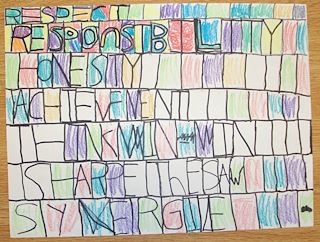 RESPECT
RESPONSIBILITY
HONESTY
ACHIEVEMENT
THINKWIN-WIN
SHARPETheSAW
SYNERGIZE